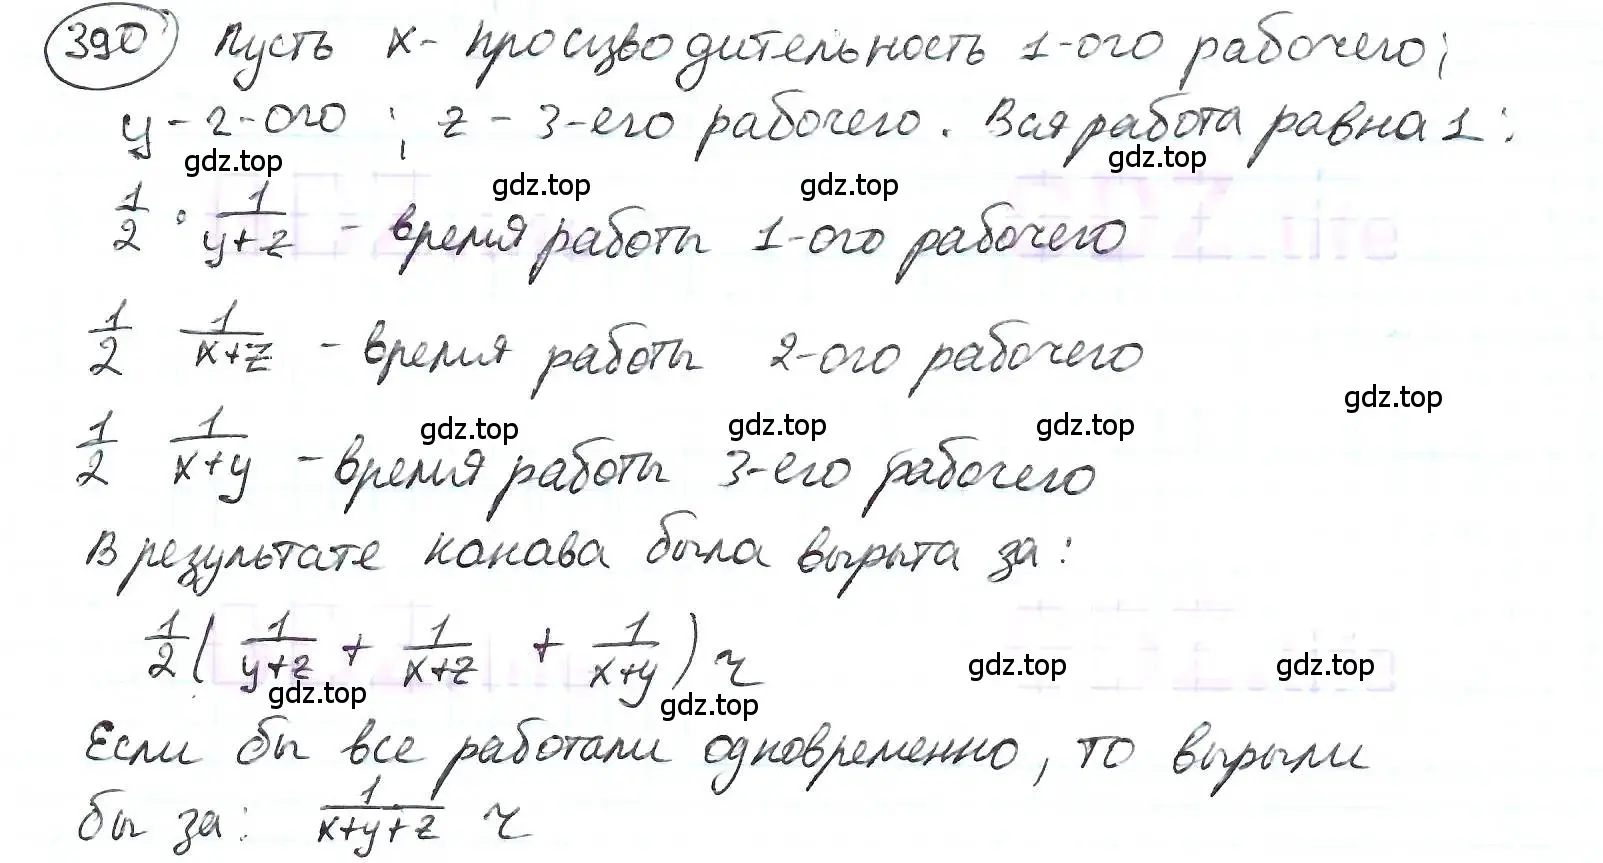 390 Пусть x - производительность 1-ого рабочего;
y - 2-ого ; z - 3-его рабочего. Вся работа равна 1:
gdz.top gdz.top gdz.top gdz.top
1/2 · 1/(y+z) - время работы 1-ого рабочего
1/2 1/(x+z) - время работы 2-ого рабочего
gdz.top
1/2 1/(x+y) - время работы 3-его рабочего
gdz.top gdz.top gdz.top
В результате канава была вырыта за:
1/2 ( 1/(y+z) + 1/(x+z) + 1/(x+y) ) ч
gdz.top gdz.top gdz.top gdz.top
Если бы все работали одновременно, то вырыли
бы за: 1/(x+y+z) ч